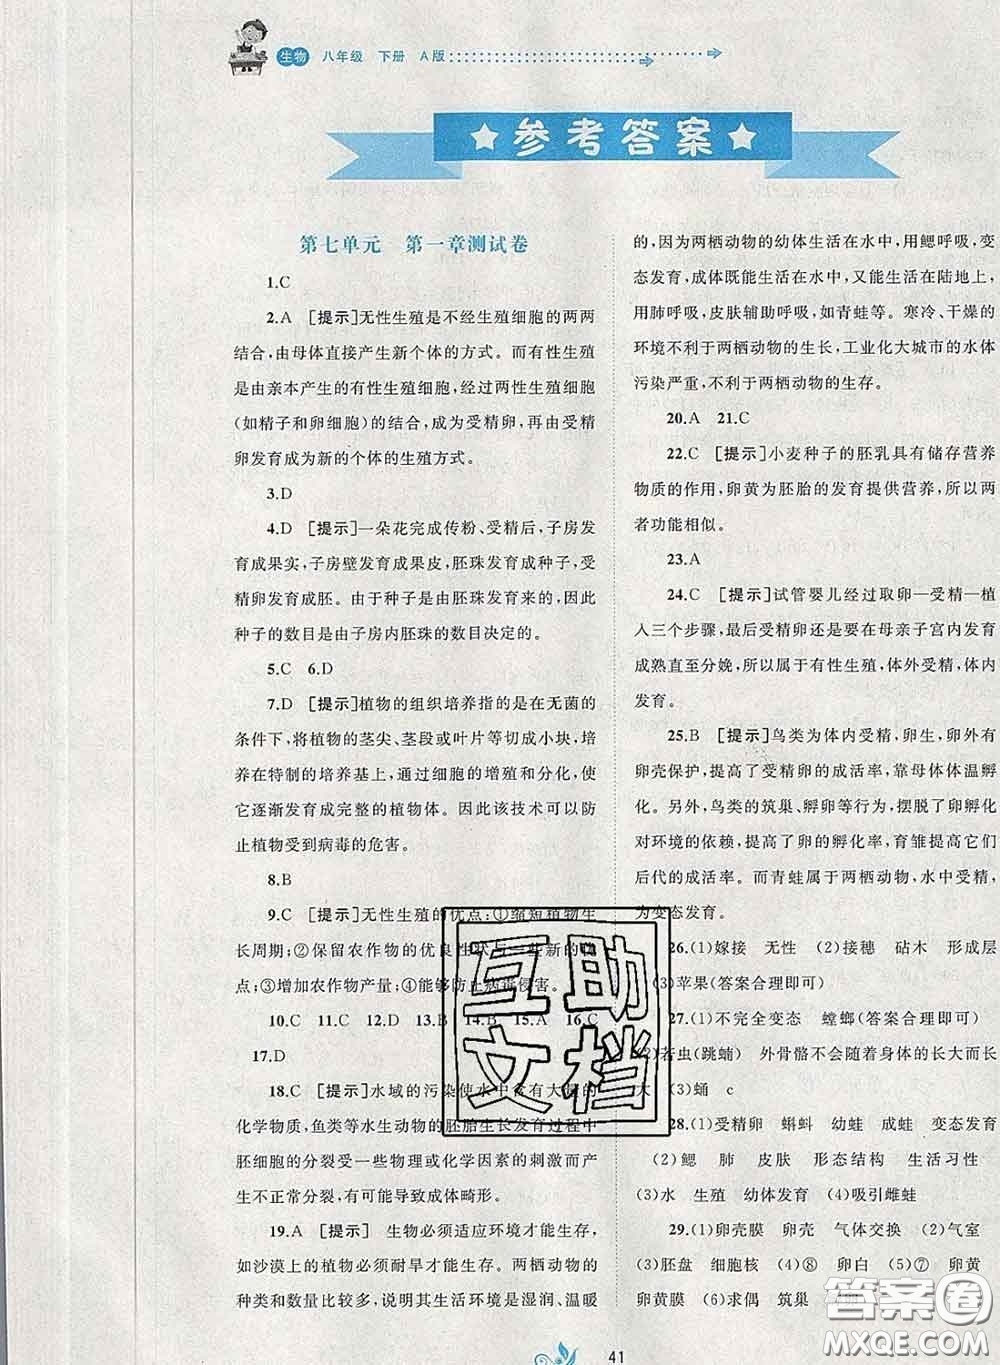 生物 八年级 下册 A版
参考答案
第七单元 第一章测试卷
1.C
2.A [提示]无性生殖是不经生殖细胞的两两
结合，由母体直接产生新个体的方式。而有性生殖
是由亲本产生的有性生殖细胞，经过两性生殖细胞
（如精子和卵细胞）的结合，成为受精卵，再由受精
卵发育成为新的个体的生殖方式。
3.D
4.D [提示]一朵花完成传粉、受精后，子房发
育成果实，子房壁发育成果皮，胚珠发育成种子，受
精卵发育成胚。由于种子是由胚珠发育来的，因此
种子的数目是由子房内胚珠的数目决定的。
5.C 6.D
7.D [提示]植物的组织培养指的是在无菌的
条件下，将植物的茎尖、茎段或叶片等切成小块，培
养在特制的培养基上，通过细胞的增殖和分化，使
它逐渐发育成完整的植物体。因此该技术可以防
止植物受到病毒的危害。
8.B
9.C [提示]无性生殖的优点：①缩短植物生
长周期；②保留农作物的优良性状与一些新的特
点；③增加农作物产量；④能够防止病毒侵害。
10.C 11.C 12.D 13.B 14.B 15.A 16.C
17.D
18.C [提示]水域的污染使水中含有大量的
化学物质，鱼类等水生动物的胚胎生长发育过程中
胚细胞的分裂受一些物理或化学因素的刺激而产
生不正常分裂，有可能导致成体畸形。
19.A [提示] 生物必须适应环境才能生存，
如沙漠上的植物必须耐旱才能生存。两栖动物的
种类和数量比较多，说明其生活环境是湿润、温暖
的，因为两栖动物的幼体生活在水中，用鳃呼吸，变
态发育，成体既能生活在水中，又能生活在陆地上，
用肺呼吸，皮肤辅助呼吸，如青蛙等。寒冷、干燥的
环境不利于两栖动物的生长，工业化大城市的水体
污染严重，不利于两栖动物的生存。
20.A 21.C
22.C [提示]小麦种子的胚乳具有储存营养
物质的作用，卵黄为胚胎的发育提供营养，所以两
者功能相似。
23.A
24.C [提示]试管婴儿经过取卵—受精—植
入三个步骤，最后受精卵还是要在母亲子宫内发育
成熟直至分娩，所以属于有性生殖，体外受精，体内
发育。
25.B [提示]鸟类为体内受精，卵生，卵外有
卵壳保护，提高了受精卵的成活率，靠母体体温孵
化。另外，鸟类的筑巢、孵卵等行为，摆脱了卵孵化
对环境的依赖，提高了卵的孵化率，育雏提高了
后代的成活率。而青蛙属于两栖动物，水中受精，
为变态发育。
26.(1)嫁接 无性 (2)接穗 砧木 形成层
(3)苹果（答案合理即可）
27.(1)不完全变态 螳螂（答案合理即可）
(2)若虫（跳蝻） 外骨骼不能随着身体的长大而长
大 (3)蛹 c
28.(1)受精卵 蝌蚪 幼蛙 成蛙 变态发育
(2)鳃 肺 皮肤 形态结构 生活习性
(3)水 生殖 幼体发育 (4)吸引雌蛙
29.(1)卵壳膜 卵壳 气体交换 (2)气室
(3)胚盘 细胞核 (4)⑧ 卵白 (5)⑦ 卵黄
卵黄膜 (6)求偶 筑巢
41
互助
文档
答案圈
MXQE.COM